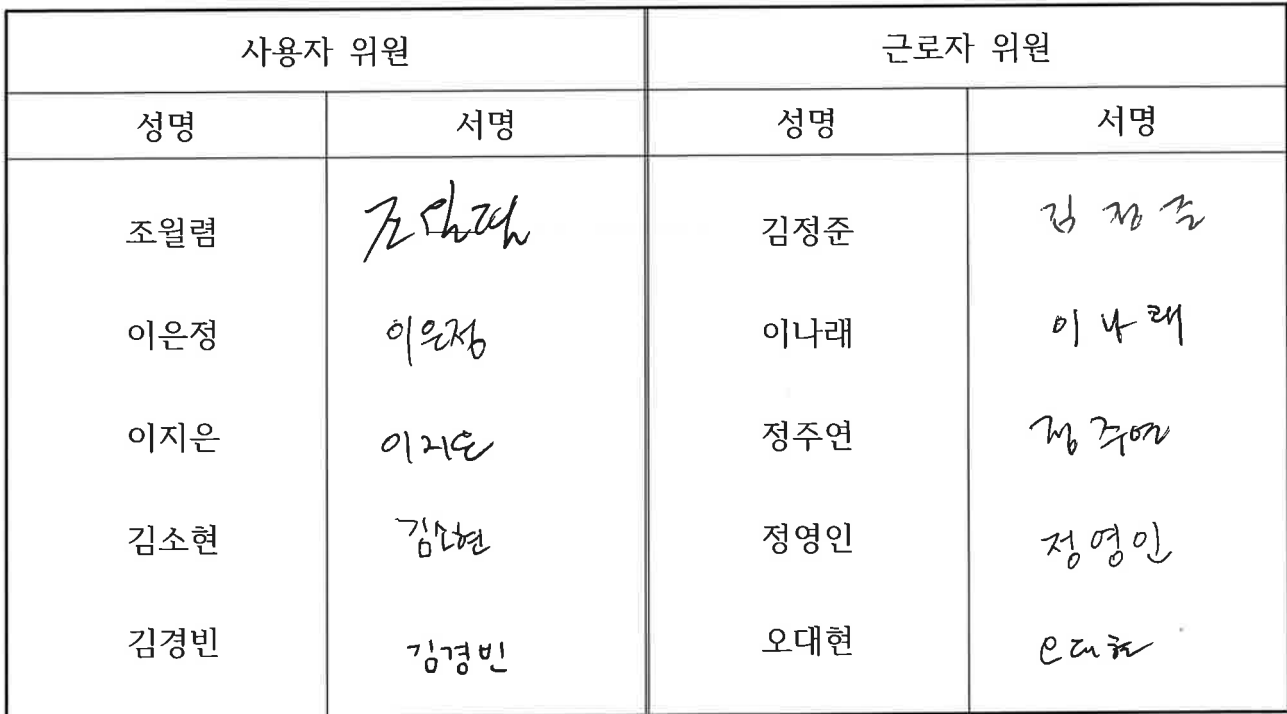 사용자 위원 근로자 위원
성명 서명 성명 서명
조월렴 조월렴 김정준 김정준
이은정 이은정 이나래 이나래
이지은 이지은 정주연 정주연
김소현 김소현 정영인 정영인
김경빈 김경빈 오대현 오대현